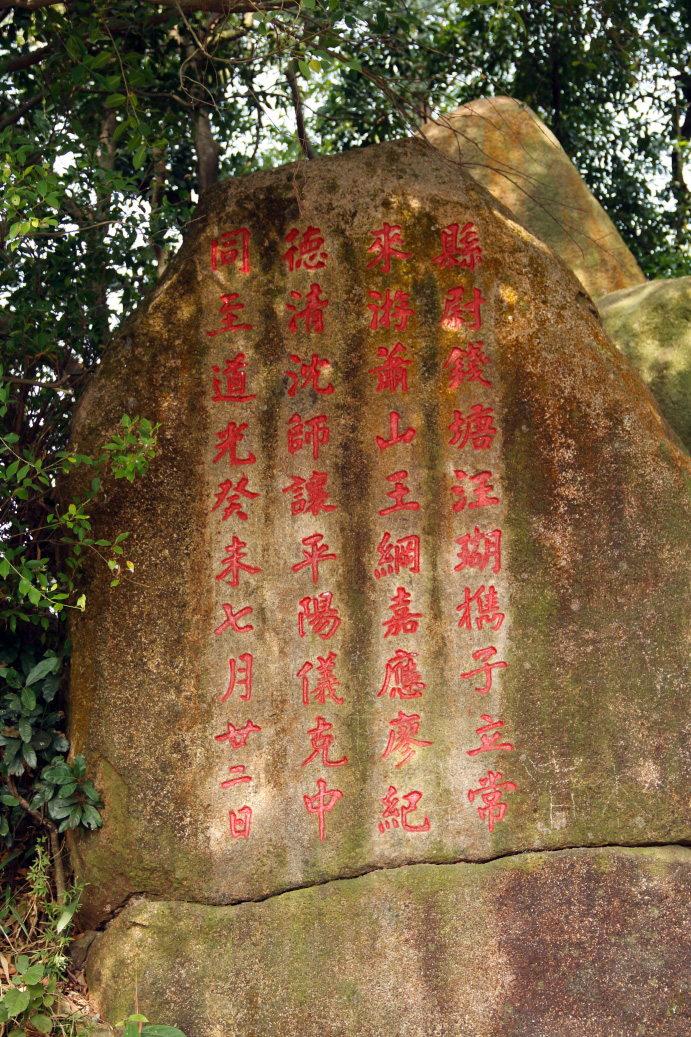 縣尉錢塘汪瑚樵子立常
來游蕭山王綱嘉應廖紀
德清沈師讓平陽儀克中
同至道光癸未七月廿二日